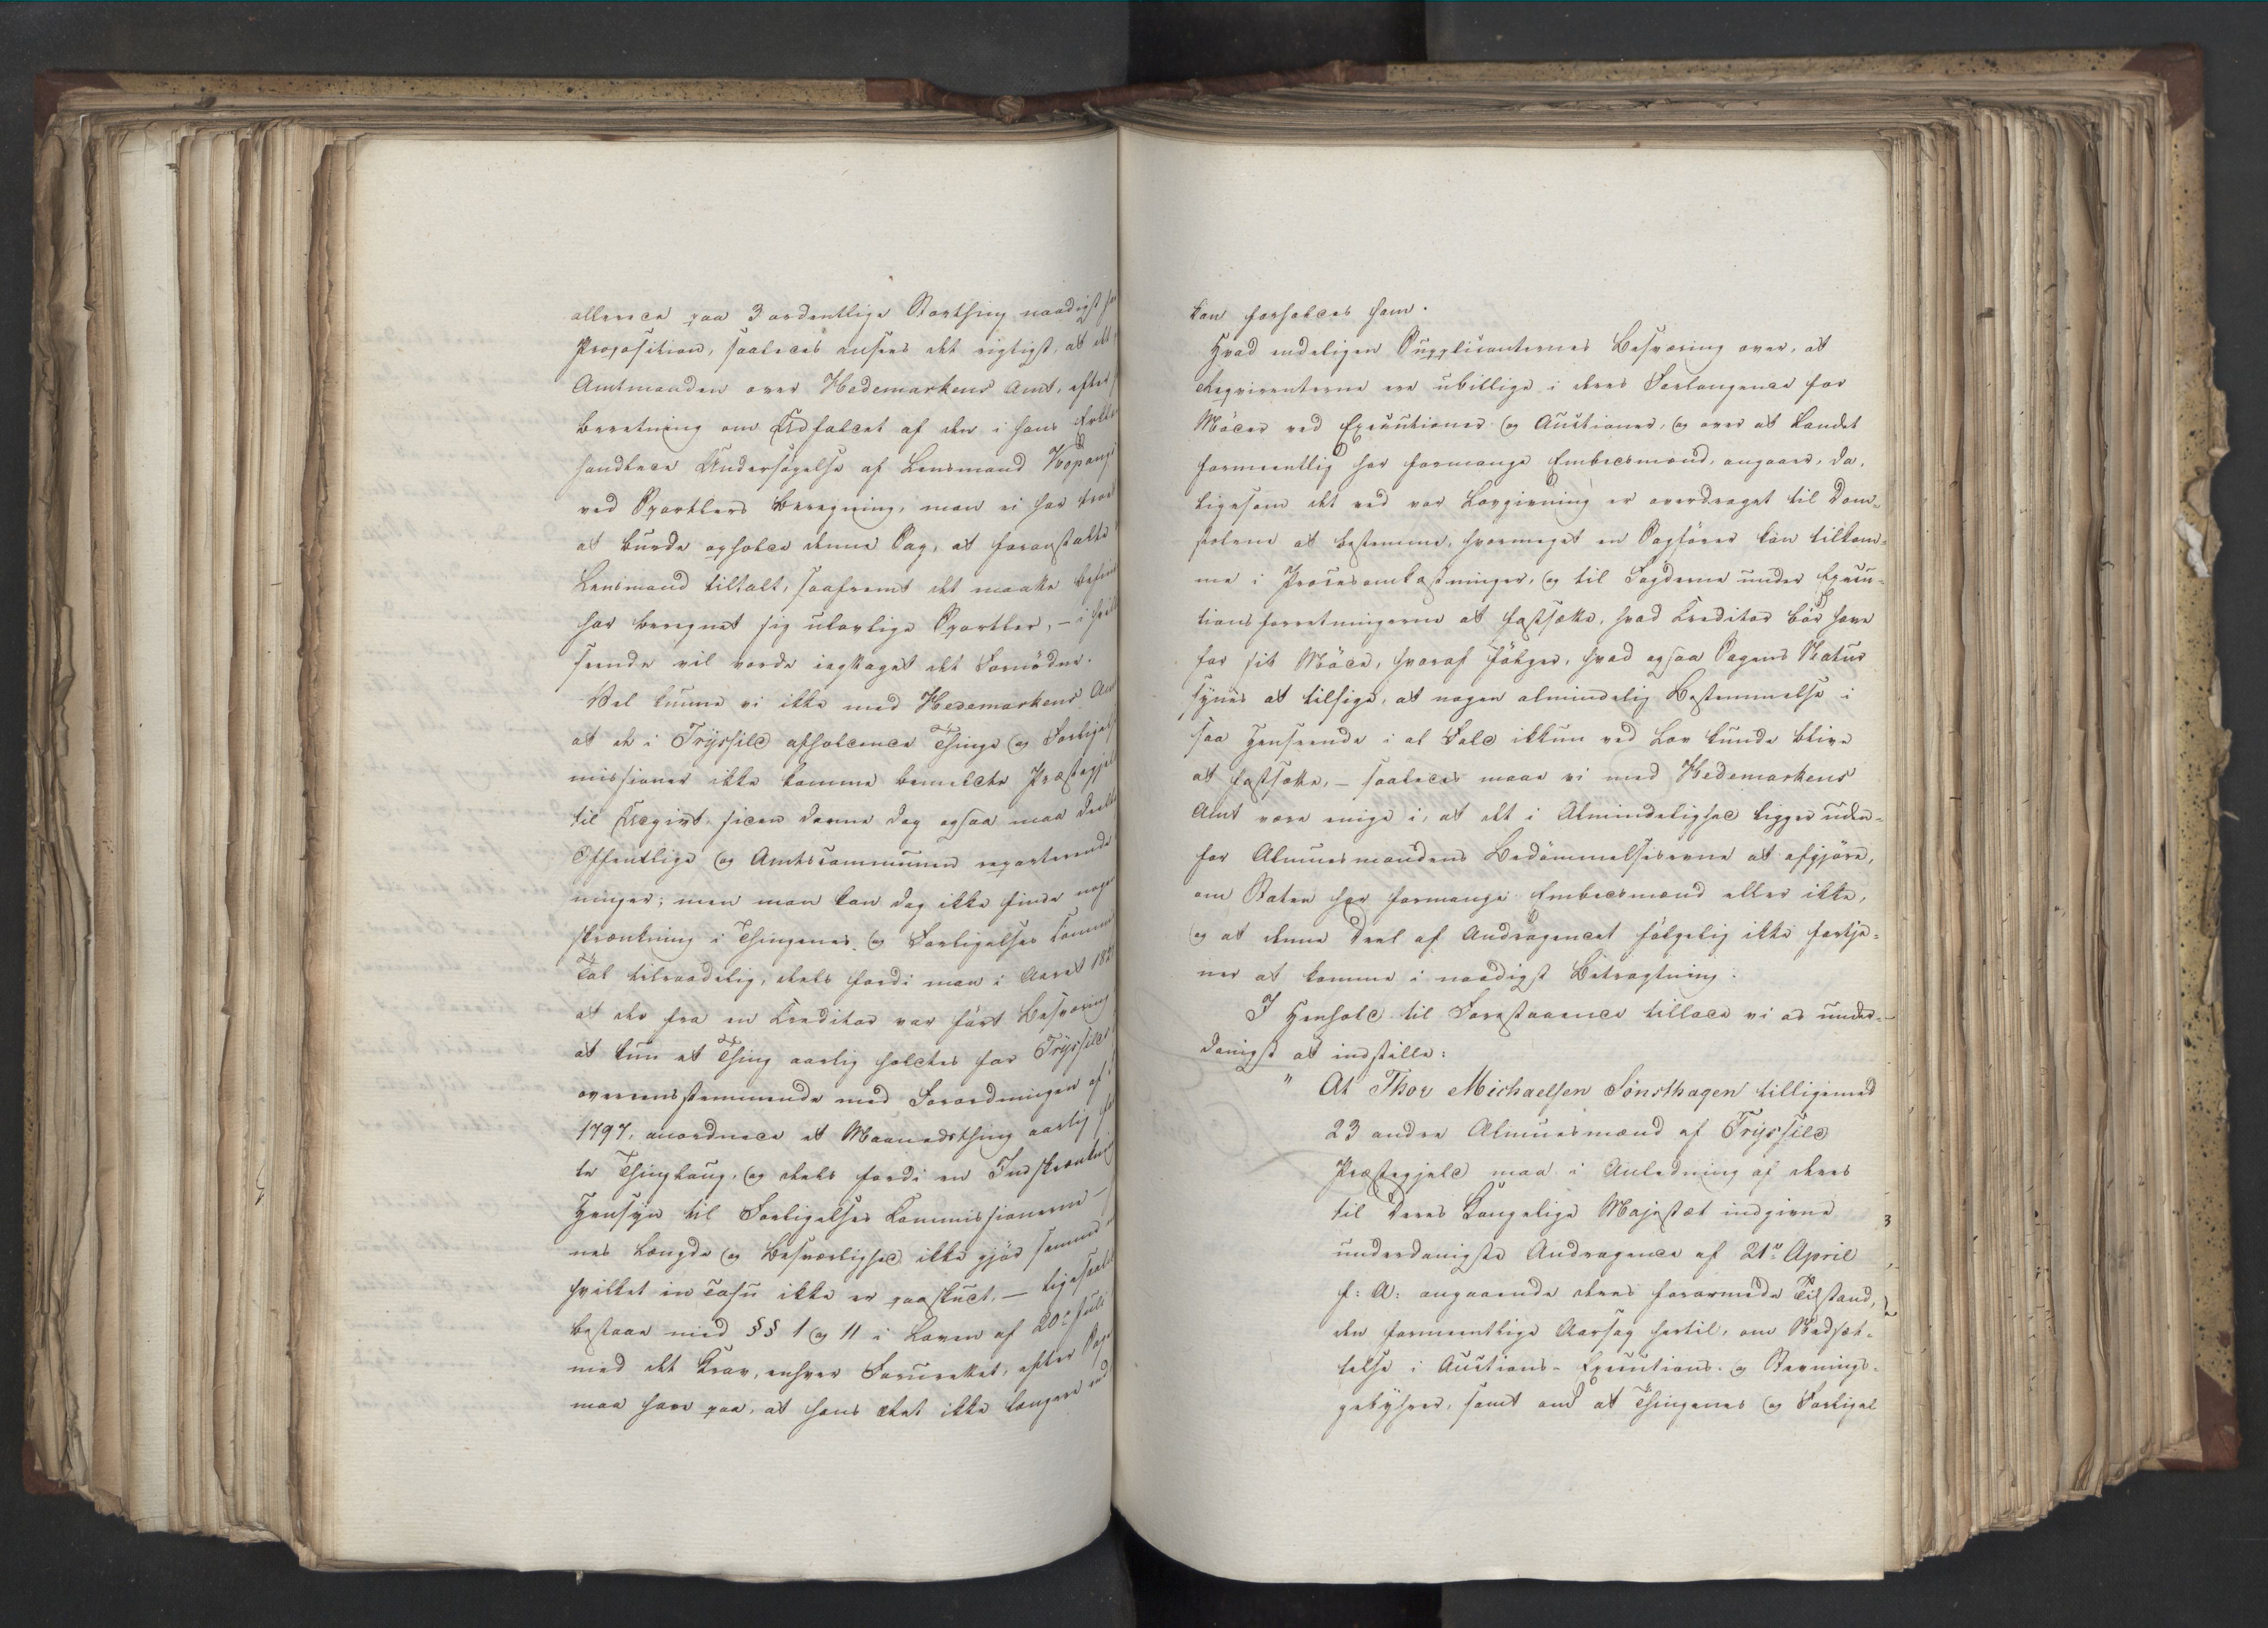 allerede paa 3 ordentlige Storthing naadigst
Proposition, saaledes ansees det rigtigst, at det
Amtmanden over Hedemarkens Amt, efter
Beretning om Udfaldet af den i hans
handlede Undersøgelse af Lensmand
ved Sportlers Beregning, man ei har troet
at burde opholde denne Sag, at foranstalte
Lensmand tiltalt, saafremt det maatte befin
har beregnet sig ulovlige Sportler, – i hvilk
seende vil vorde iagttaget det Fornødne.
Vel kunne vi ikke med Hedemarkens Am
at de i Trÿssild afholdende Thinge og Forligels
missioner ikke komme bemeldte Præstegjeld
til Udgivt siden denne dog ogsaa maa deelt
Offentlige og Amtscommunen reparterende
ninger; men man kan dog ikke finde nogen
skrænkning i Thingenes og Forligelses Commi
Tal tilraadelig, deels fordi man i Aaret 182
at der fra en Creditor var ført Besværing
at kun et Thing aarlig holdtes for Trÿssild
overeensstemmende med Forordningen af
1797, anordnede et Maanedsthing aarlig
te Thinglaug, og deels fordi en Indskrænkning
Hensyn til Forligelses Commissionerne –
nes Længde og Besværlighed ikke gjør samme
hvilket in Casu ikke er paaskudt, – ligesaalidt
bestaae med §§ 1 og 11 i Loven af 20de Juli
med det Krav, enhver Forurettet, efter Sage
maa have paa, at hans Ret ikke længere end
kan forholdes ham.
Hvad endeligen Supplicanternes Besværing over, at
Reqvirenterne ere ubillige i deres Forlangende for
Møder ved Executioner og Auctioner, og over at Landet
formeentlig har formange Embedsmænd, angaaer, da,
ligesom det ved vor Lovgivning er overdraget til Dom-
stolene at bestemme, hvormeget en Sagfører kan tilkom-
me i Procesomkostninger, og til Fogderne under Execu-
tionsforretningerne at fastsætte, hvad Creditor bør have
for sit Møde, hvoraf følger, hvad ogsaa Sagens Natur
synes at tilsige, at nogen almindelig Bestemmelse i
saa Henseende i al Fald ikkun ved Lov kunde blive
at fastsætte, – saaledes maae vi med Hedemarkens
Amt være enige i, at det i Almindelighed ligger uden-
for Almuesmandens Bedømmelsesevne at afgjøre,
om Staten har formange Embedsmænd eller ikke,
og at denne Deel af Andragendet følgelig ikke fortje-
ner at komme i naadigst Betragtning.
I Henhold til Forestaaende tillade vi os under-
danigst at indstille:
" At Thor Michaelsen Sønsthagen tilligemed
23 andre Almuesmænd af Trÿssild
Præstegjeld maa i Anledning af deres
til Deres Kongelige Majestæt indgivne
underdanigste Andragende af 21de April
f: A: angaaende deres forarmede Tilstand,
den formeentlige Aarsag hertil, om Nedsæt-
telse i Auctions- Executions- og Stevnings-
gebyhrer, samt om at Thingenes og Forligel